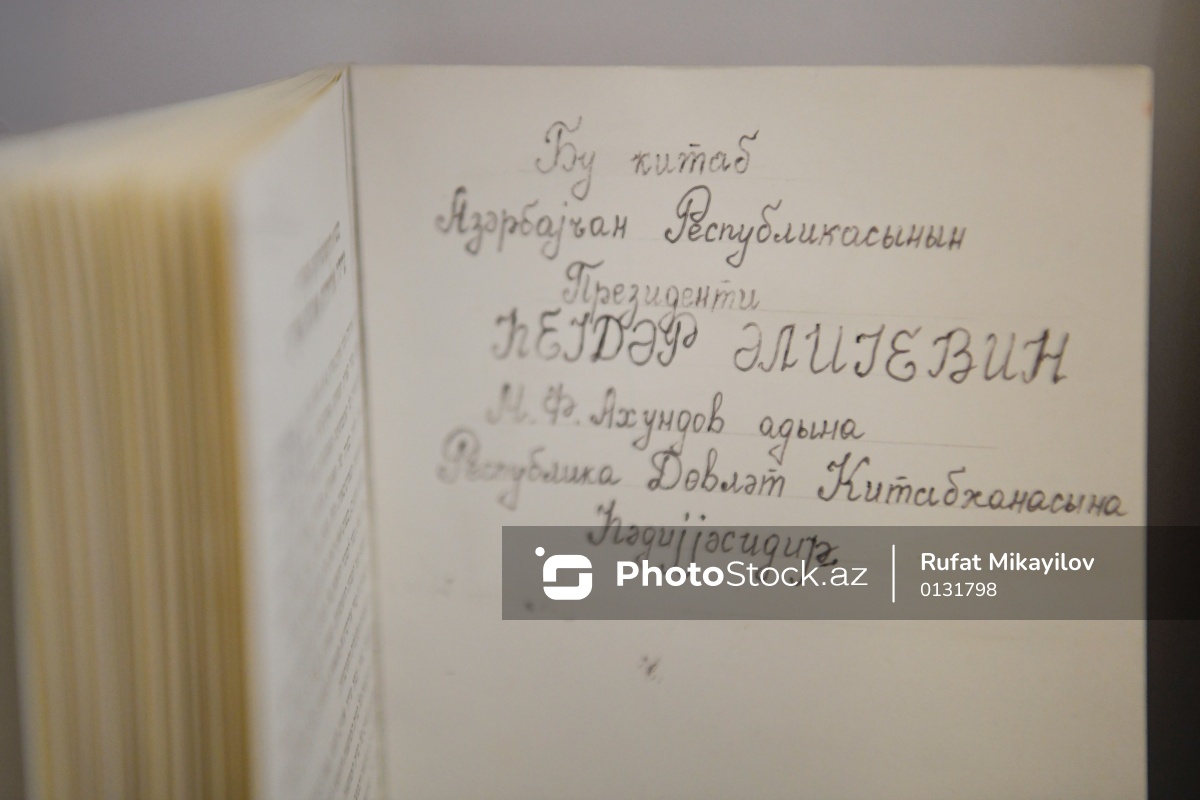 Бу китаб
Азәрбајҹан Республикасынын
Президенти
ҺЕЈДӘР ӘЛИЈЕВИН
М.Ф. Ахундов адына
Республика Дөвләт Китабханасына
Һәдијјәсидир
PhotoStock.az
Rufat Mikayilov
0131798